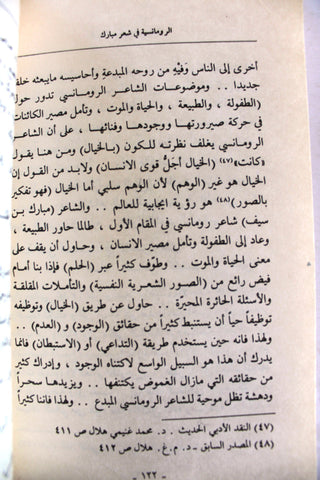 الرومانسية في شعر مبارك
أخرى إلى الناس وَفيْهِ من روحه المبدعةِ وأحاسيسه مايبعثه خلقاً
جديدا .. وموضوعات الشاعر الرومانسي تدور حول
(الطفولة ، والطبيعة ، والحياة والموت ، وتأمل مصير الكائنات
في حركة صيرورتها ووجودها وفنائها ، على أن الشاعر
الرومانسي يغلف نظرته للكون (بالخيال) ومن هنا يقول
«كانت» (٤٧) (الخيال أجلُّ قوى الانسان) ولابد من القول إن
الخيال هو غير (الوهم) لأن الوهم سلبي أما الخيال (فهو تفكير
بالصور) (٤٨) هو رؤية ايجابية للعالم .. والشاعر (مبارك بن
سيف) شاعر رومانسي في المقام الأول ، طالما حاور الطبيعة ،
وعاد إلى الطفولة وتأمل مصير الانسان ، وحاول أن يقف على
معنى الحياة والموت .. وطوّف كثيراً عبر (الحلم) فإذا بنا أمام
فيض رائع من (الصور الشعرية النفسية) والتأملات المقلقة
والأسئلة الحائرة المحيّرة .. حاول عن طريق (الخيال) وتوظيفه
توظيفاً حياً أن يستنبط كثيراً من حقائق (الوجود) و (العدم) ..
ولهذا فانه حين يستخدم طريقة (التداعي) أو (الاستبطان) فانما
يدرك أن هذا هو السبيل الواسع لاكتناه الوجود ، وإدراك كثير
من حقائقه التي مازال الغموض يكتنفها .. ويزيدها سحراً
ودهشة تظل موحية للشاعر الرومانسي المبدع .. ولهذا فاننا كثيراً
(٤٧) النقد الأدبي الحديث . د. محمد غنيمي هلال ص ٤١١
(٤٨) المصدر السابق ـ د.م.غ. هلال ص ٤١٢
- ١٢٢ -